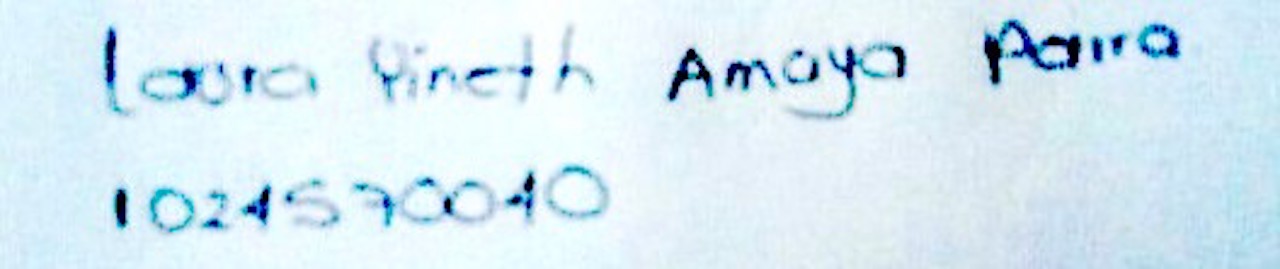 Laura Yineth Amaya Parra
1024570040